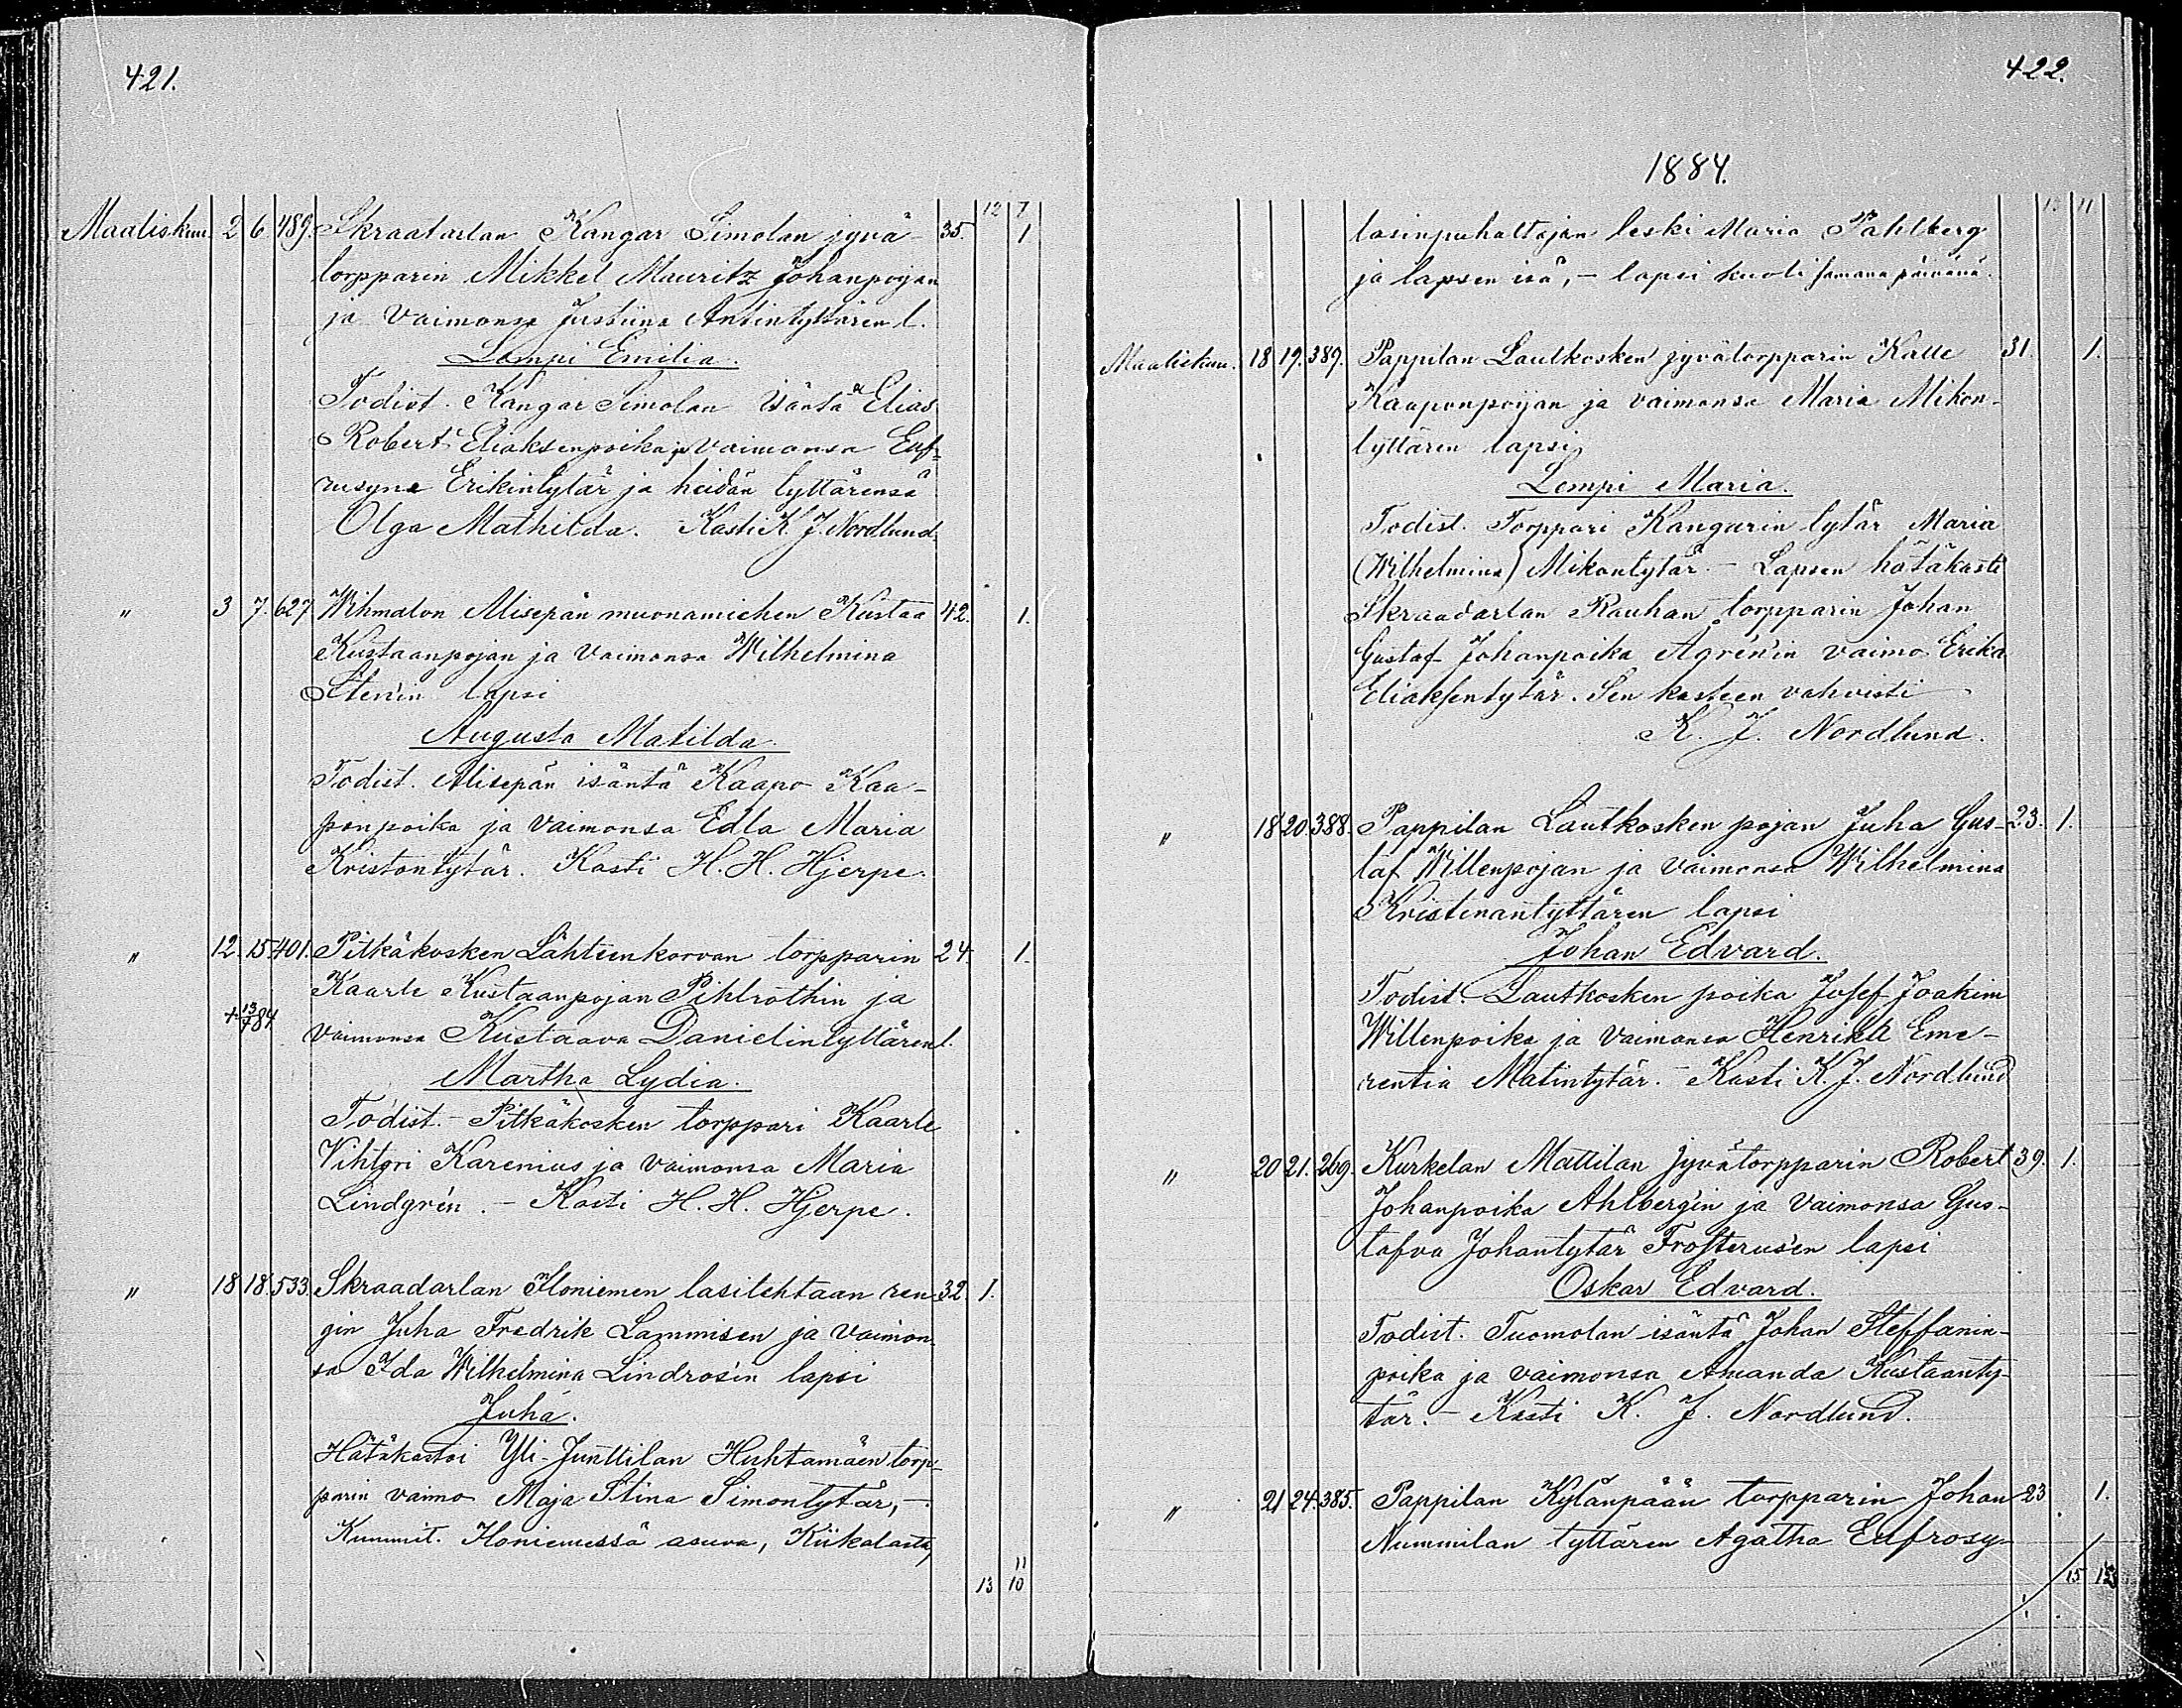 421.
12 7
Maaliskuu. 2 6 489. Skraatarlan Kangar Simolan jyvä- 35. 1
torpparin Mikkel Mauritz Johanpojan
ja vaimonsa Justiina Antintyttären l.
Lempi Emilia.
Todist. Kangar Simolan isäntä Elias
Robert Eliaksenpoika ja vaimonsa Euf-
rusyna Erikintytär ja heidän tyttärensä
Olga Mathilda. Kasti K. J. Nordlund.
" 3 7. 627 Wihmalon Alisepän muonamiehen Kustaa 42. 1.
Kustaanpojan ja vaimonsa Wilhelmina
Sten'in lapsi
Augusta Matilda.
Todist. Alisepän isäntä Kaapo Kaa-
ponpoika ja vaimonsa Edla Maria
Kristontytär. Kasti H. H. Hjerpe.
" 12. 15 401. Pitkäkosken Lähteenkorvan torpparin 24. 1.
Kaarle Kustaanpojan Pihlrothin ja
+ 13/7 84 vaimonsa Kustaava Danielintyttären l.
Martha Lydia.
Todist. - Pitkäkosken torppari Kaarle
Vihtori Karenius ja vaimonsa Maria
Lindgrén. - Kasti H. H. Hjerpe.
" 18 18. 533. Skraadarlan Iloniemen lasitehtaan ren- 32. 1.
gin Juha Fredrik Lammisen ja vaimon-
sa Ida Wilhelmina Lindros'in lapsi
Juha.
Hätäkastoi Yli-Junttilan Huhtamäen torp-
parin vaimo Maja Stina Simontytär, -
Kummit. Iloniemessä asuva, Kiikalasta,
11
13 10
422.
1884.
13 11
lasinpuhaltajan leski Maria Pahlberg
ja lapsen isä, - lapsi kuoli samana päivänä.
Maaliskuu. 18 19. 389. Pappilan Lautkosken jyvätorpparin Kalle 31. 1.
Kaaponpojan ja vaimonsa Maria Mikon-
tyttären lapsi
Lempi Maria.
Todist. Torppari Kangarin tytär Maria
(Wilhelmina) Mikontytär - Lapsen hätäkasti
Skraadarlan Rauhan torpparin Johan
Gustaf Johanpoika Ågrén'in vaimo Erika
Eliaksentytär. Sen kasteen vahvisti
K. J. Nordlund.
" 18 20 388. Pappilan Lautkosken pojan Juha Gus- 23. 1.
taf Willenpojan ja vaimonsa Wilhelmina
Kristinantyttären lapsi
Johan Edvard.
Todist. Lautkosken poika Josef Joakim
Willenpoika ja vaimonsa Henrika Eme-
rentia Matintytär. - Kasti K. J. Nordlund
" 20 21. 269. Kurkelan Mattilan jyvätorpparin Robert 39. 1.
Johanpoika Ahlbergin ja vaimonsa Gus-
tafva Johantytär Frosterus'en lapsi
Oskar Edvard.
Todist. Tuomolan isäntä Johan Steffanin-
poika ja vaimonsa Amanda Kustaanty-
tär. - Kasti K. J. Nordlund.
" 21 24. 385. Pappilan Kylänpään torpparin Johan 23 1.
Nummilan tyttären Agatha Eufrosy-
15